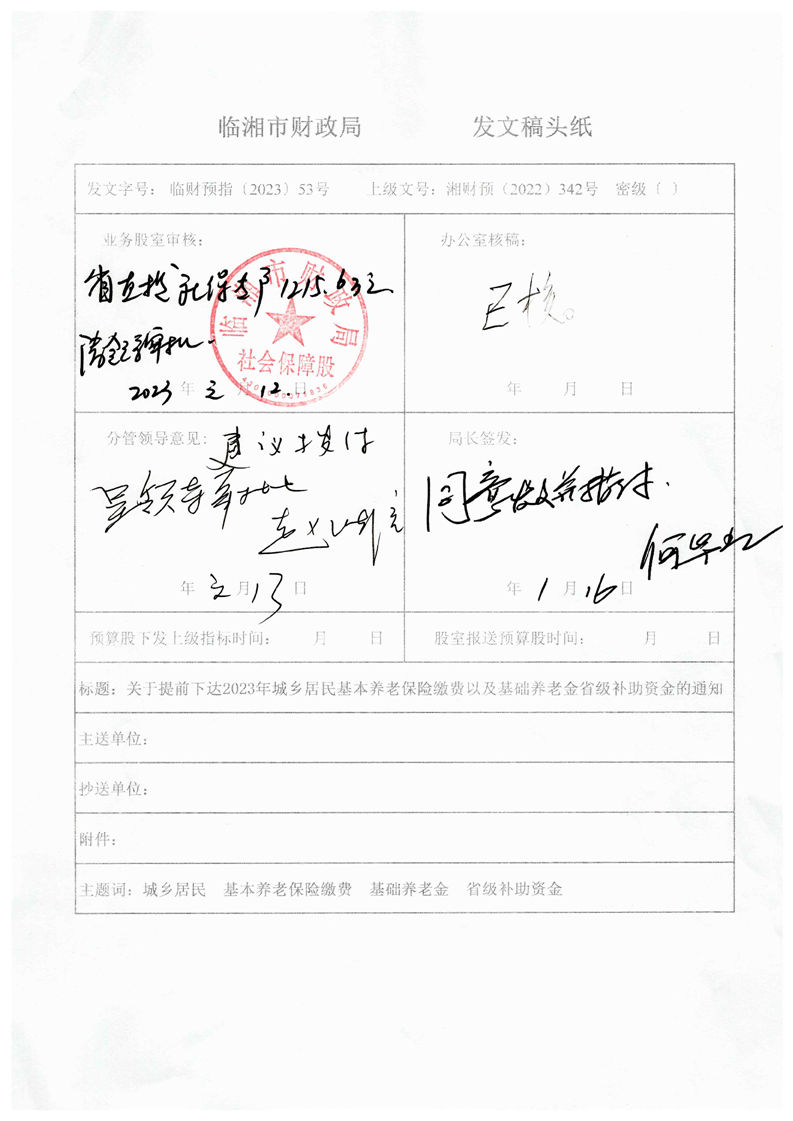 临湘市财政局 发文稿头纸
发文字号： 临财预指〔2023〕53号 上级文号：湘财预（2022）342号 密级〔 〕
业务股室审核：
省直拨社保专户1215.63元
2023年元月12.日
临湘市财政局
社会保障股
办公室核稿：
已核。
年 月 日
分管领导意见：建议拨付
呈领导审批
年元月13日
局长签发：
同意
年1月16日
预算股下发上级指标时间： 月 日
股室报送预算股时间： 月 日
标题：关于提前下达2023年城乡居民基本养老保险缴费以及基础养老金省级补助资金的通知
主送单位：
抄送单位：
附件：
主题词：城乡居民 基本养老保险缴费 基础养老金 省级补助资金